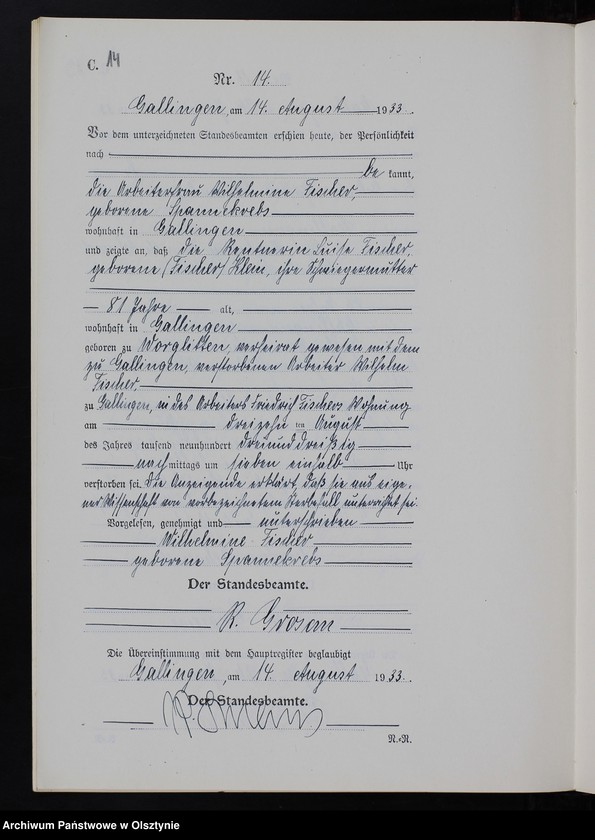 C. 14
Nr. 14.
Gallingen, am 14. August 1933.
Vor dem unterzeichneten Standesbeamten erschien heute, der Persönlichkeit
nach
be kannt,
die Arbeiterfrau Wilhelmine Fischer,
geborene Spannekrebs
wohnhaft in Gallingen
und zeigte an, daß die Rentnerin Luise Fischer,
geborene (Fischer) Klein, ihre Schwiegermutter
81 Jahre alt,
wohnhaft in Gallingen
geboren zu Worglitten, verheirat gewesen mit dem
zu Gallingen verstorbenen Arbeiter Wilhelm
Fischer,
zu Gallingen, in des Arbeiters Friedrich Fischers Wohnung
am dreizehn ten August
des Jahres tausend neunhundert dreiunddreißig
nach mittags um sieben einhalb Uhr
verstorben sei. Die Anzeigende erklärt, daß sie aus eige-
ner Wissenschaft von vorbezeichnetem Sterbefall unterrichtet sei.
Vorgelesen, genehmigt und unterschrieben
Wilhelmine Fischer
geborene Spannekrebs
Der Standesbeamte.
R.
Die Übereinstimmung mit dem Hauptregister beglaubigt
Gallingen, am 14. August 1933.
Der Standesbeamte.
R.-R.
Archiwum Państwowe w Olsztynie